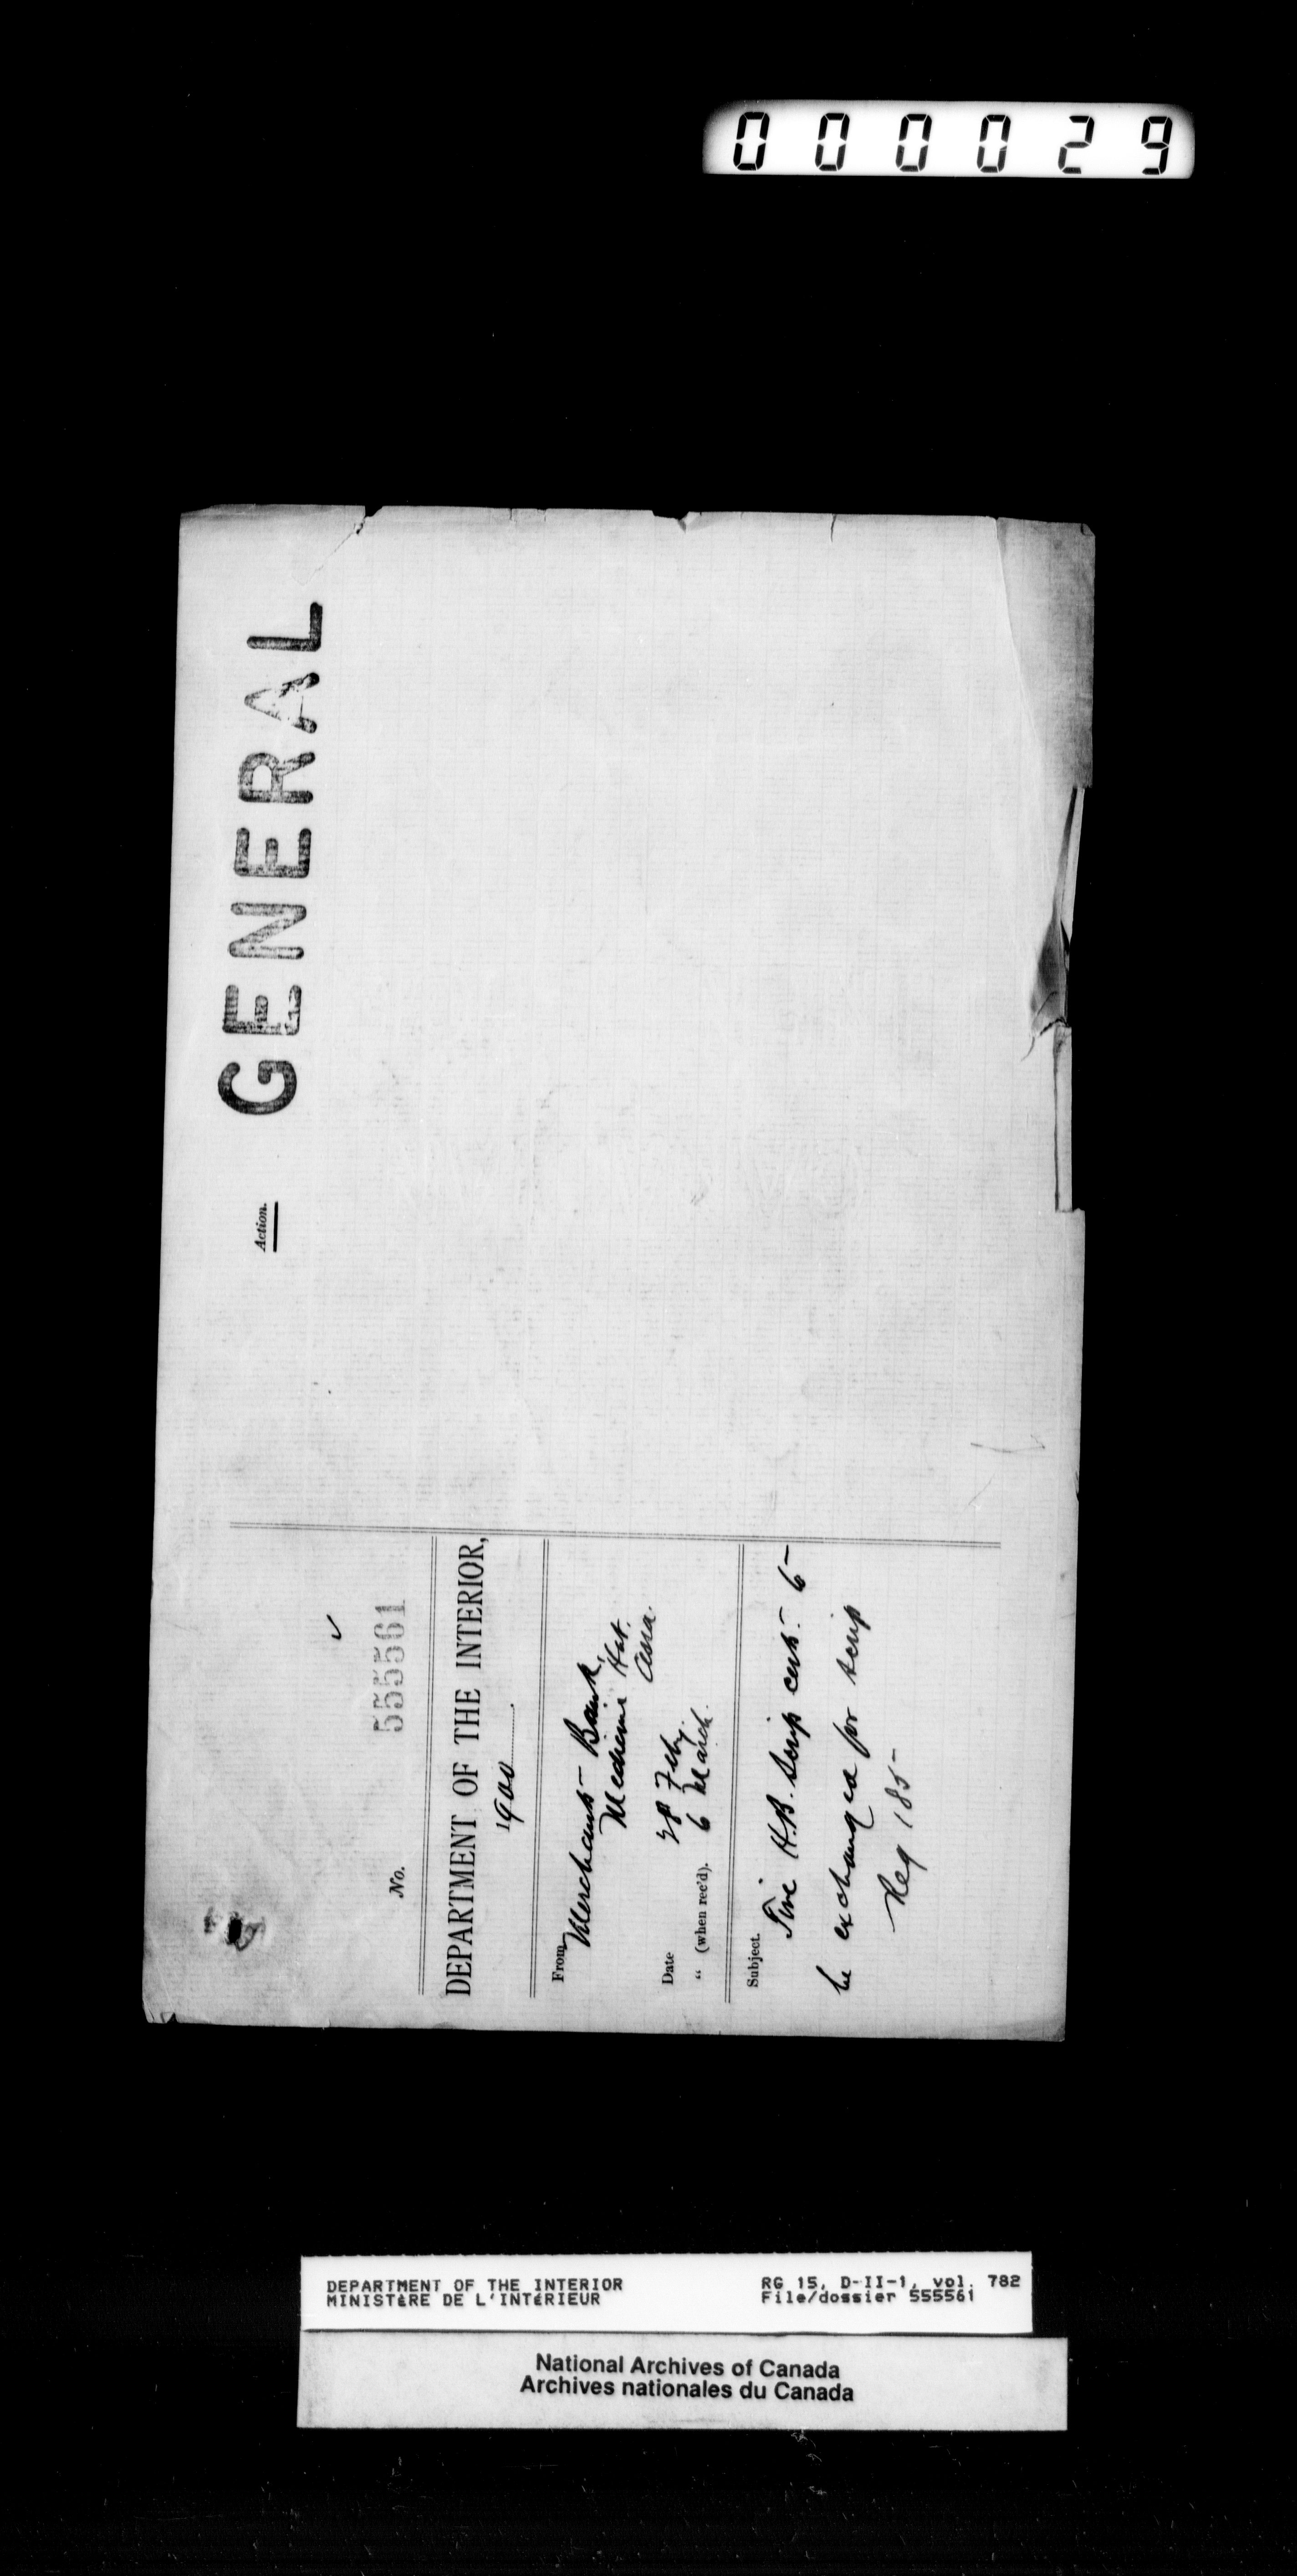 000029
Action.
GENERAL
No. 555561
DEPARTMENT OF THE INTERIOR,
1900
From Merchants Bank,
Medicine Hat.
Assa.
Date 28 Feby.
" (when rec'd). 6 March.
Subject.
Five H.B. Scrip certs. to
be exchanged for scrip
Reg 185
DEPARTMENT OF THE INTERIOR
MINISTÈRE DE L'INTÉRIEUR
RG 15, D-II-1, vol. 782
File/dossier 555561
National Archives of Canada
Archives nationales du Canada